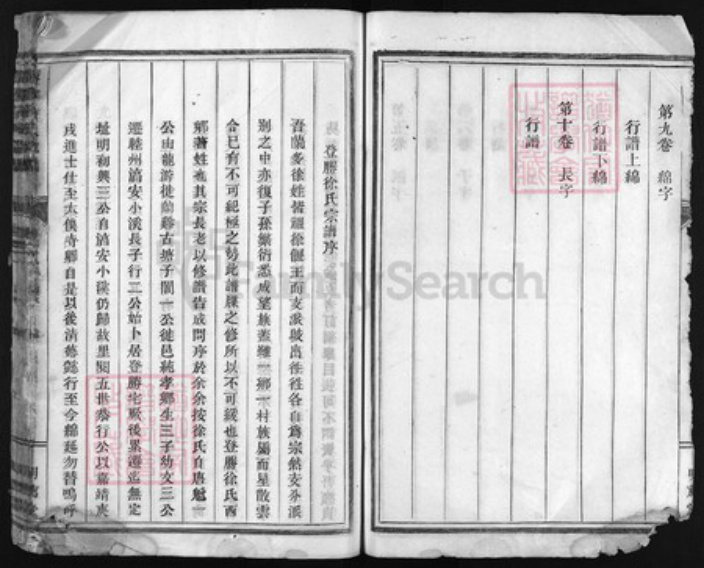 第九卷 綿字
行譜上綿
行譜下綿
第十卷 長字
行譜
登勝徐氏宗譜序
吾蘭多徐姓皆祖徐偃王而支派散出往往各自為宗然支分派
別之中亦復子孫繁衍悉成望族蓋雖一鄉一村族屬而星散雲
合已有不可紀極之勢此譜牒之修所以不可緩也登勝徐氏西
鄉著姓也其宗長老以修譜告成問序於余余按徐氏自唐魁一
公由龍游徙蘭谿古塘子閏一公徙邑純孝鄉生三子幼文三公
遷睦州淯安小溪長子行二公始卜居登勝宅厥後累遷迄無定
址明初興三公自淯安小溪仍歸故里閱五世恭行公以嘉靖庚
戌進士仕至太僕寺卿自是以後清德懿行至今綿延勿替嗚呼
FamilySearch